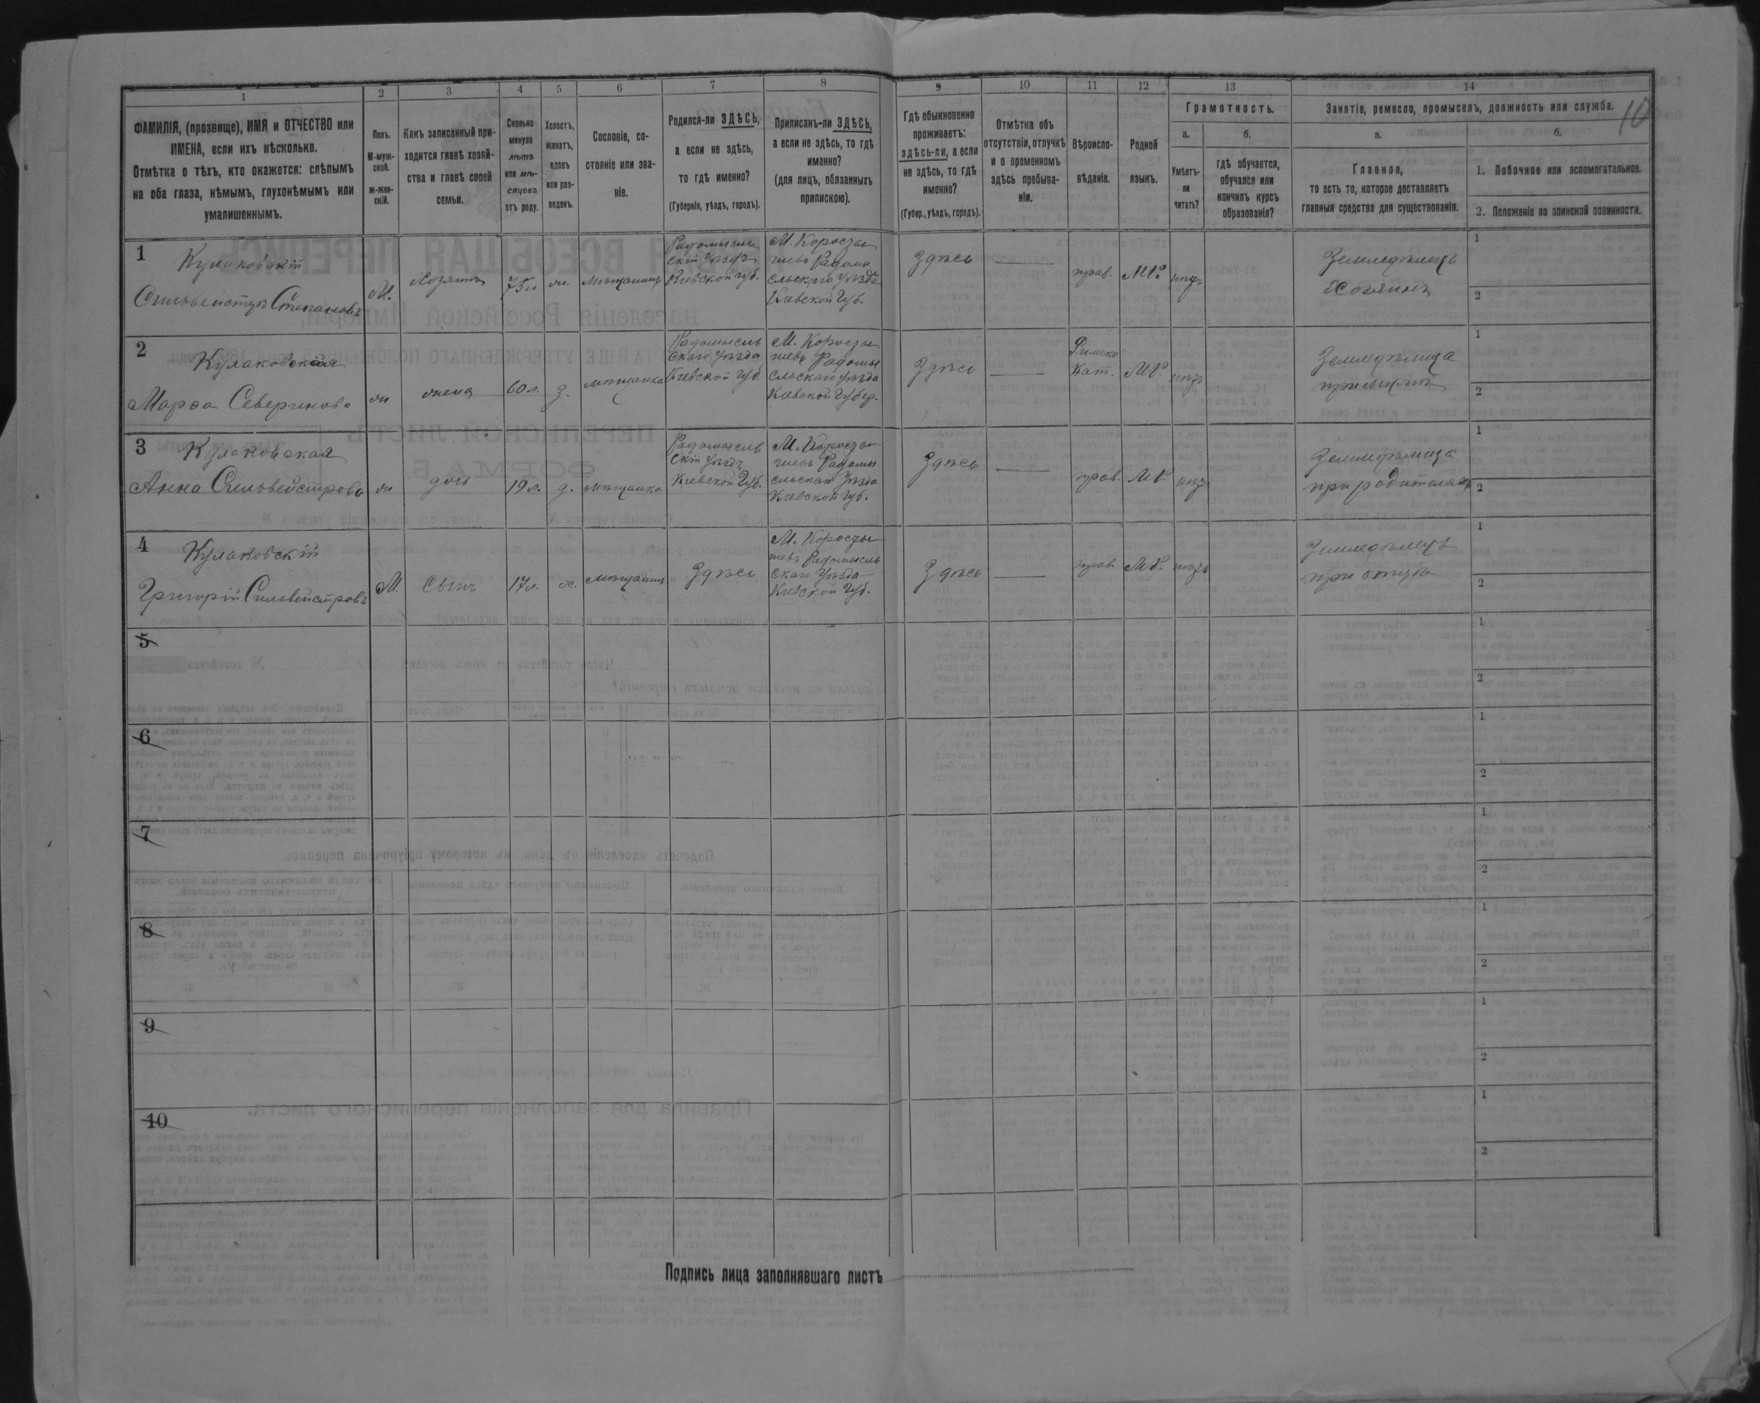 1 2 3 4 5 6 7 8 9 10 11 12 13 14
10
ФАМИЛІЯ, (прозвище), ИМЯ и ОТЧЕСТВО или
ИМЕНА, если ихъ нѣсколько.
Отмѣтка о тѣхъ, кто окажется: слѣпымъ
на оба глаза, нѣмымъ, глухонѣмымъ или
умалишеннымъ.
Полъ.
М-муж-
ской.
ж-жен-
скій.
Какъ записанный при-
ходится главѣ хозяй-
ства и главѣ своей
семьи.
Сколько
минуло
лѣтъ
или мѣ-
сяцевъ
отъ роду.
Холостъ,
женатъ,
вдовъ
или раз-
веденъ.
Сословіе, со-
стояніе или зва-
ніе.
Родился-ли ЗДѢСЬ,
а если не здѣсь,
то гдѣ именно?
(Губернія, уѣздъ, городъ).
Приписанъ-ли ЗДѢСЬ,
а если не здѣсь, то гдѣ
именно?
(для лицъ, обязанныхъ
припискою).
Гдѣ обыкновенно
проживаетъ:
здѣсь-ли, а если
не здѣсь, то гдѣ
именно?
(Губер., уѣздъ, городъ).
Отмѣтка объ
отсутствіи, отлучкѣ
и о временномъ
здѣсь пребыва-
ніи.
Вѣроиспо-
вѣданіе.
Родной
языкъ.
Грамотность.
а.
Умѣетъ-
ли
читать?
б.
гдѣ обучается,
обучался или
кончилъ курсъ
образованія?
Занятіе, ремесло, промыселъ, должность или служба.
а.
Главное,
то есть то, которое доставляетъ
главныя средства для существованія.
б.
1. Побочное или вспомогательное.
2. Положеніе по воинской повинности.
1
Кулаковскій
Сильвестръ Степановъ
М.
Хозяинъ
75 л
ж.
мѣщанинъ
Радомысль
скій уѣздъ
Кіевской губ.
М. Коросты
шевъ Радомы
сльскаго уѣзда
Кіевской Губ.
Здѣсь
прав.
М.Р.
нѣтъ
Земледѣлецъ
Хозяинъ
1
2
2
Кулаковская
Марѳа Северинова
ж
жена
60 л.
з.
мѣщанка
Радомысль
скаго уѣзда
Кіевской губ.
М. Коросты
шевъ Радомы
сльскаго уѣзда
Кіевской Губер.
Здѣсь
Римско
Кат.
М.Р.
нѣтъ
Земледѣлица
при мужѣ
1
2
3
Кулаковская
Анна Сильвейстрова
ж
дочь
19 л.
д.
мѣщанка
Радомысль
скій уѣздъ
Кіевской Губ.
М. Коросты
шевъ Радомы
сльскаго уѣзда
Кіевской Губ.
Здѣсь
прав.
М.Р.
нѣтъ
Земледѣлица
при родителяхъ
1
2
4
Кулаковскій
Григорій Сильвейстровъ
М.
сынъ
17 л.
х.
мѣщанинъ
Здѣсь
М. Коросты
шевъ Радомысль
скаго уѣзда
Кіевской Губ.
Здѣсь
прав.
М.Р.
нѣтъ
Земледѣлецъ
при отцѣ
1
2
5
1
2
6
1
2
7
1
2
8
1
2
9
1
2
10
1
2
Подпись лица заполнявшаго листъ